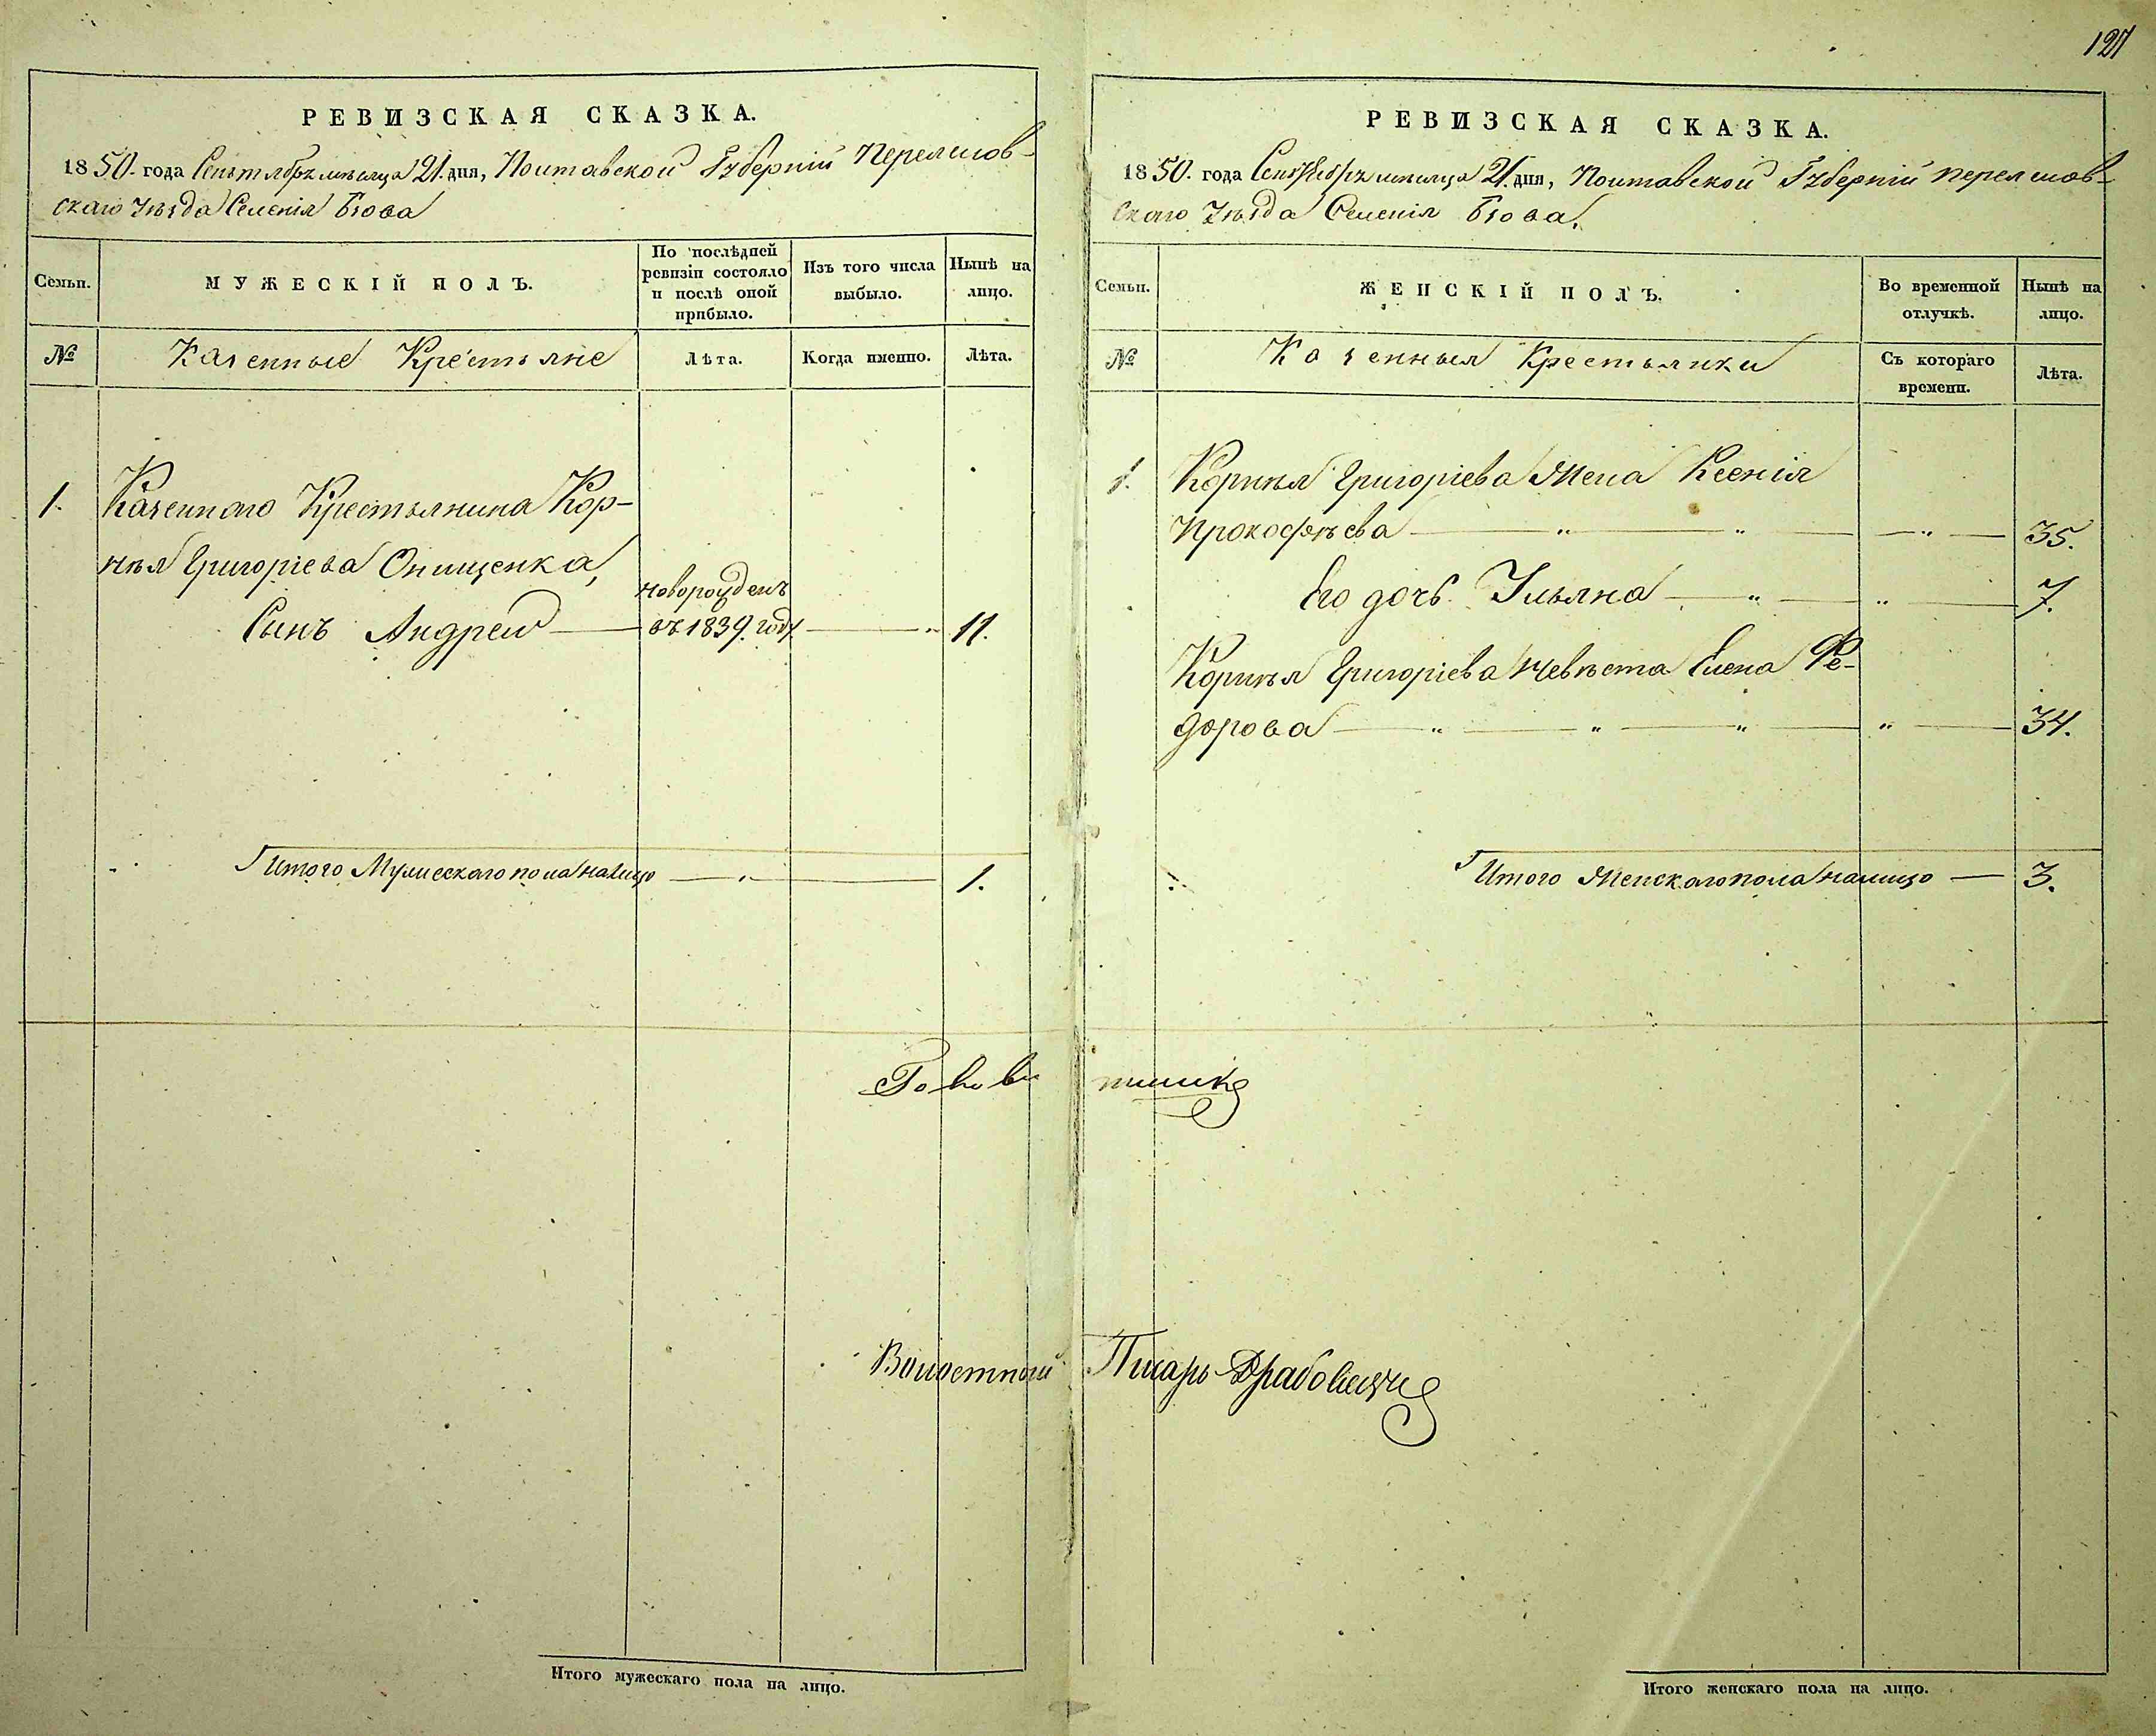 127
РЕВИЗСКАЯ СКАЗКА.
1850. года Сентября мѣсяца 21. дня, Полтавской Губерніи Переяслов-
скаго Уѣзда Селенія
Семьи.
МУЖЕСКІЙ ПОЛЪ.
По послѣдней ревизіи состояло и послѣ оной прибыло.
Изъ того числа выбыло.
Нынѣ на лицо.
№
Казенные Крестьяне
Лѣта.
Когда именно.
Лѣта.
1. Казенного Крестьянина Кор-
нѣя Григоріева Онищенка,
новорожденъ
Сынъ Андрей — въ 1839. году. — " 11.
Итого Мужескаго пола налицо — " — 1.
Итого мужескаго пола на лицо.
РЕВИЗСКАЯ СКАЗКА.
1850. года Сентября мѣсяца 21. дня, Полтавской Губерніи Переяслов-
скаго Уѣзда Селенія
Семьи.
ЖЕНСКІЙ ПОЛЪ.
Во временной отлучкѣ.
Нынѣ на лицо.
№
Казенныя Крестьянки
Съ котораго времени.
Лѣта.
1. Корнѣя Григоріева Жена Ксенія
Прокофьева — " — " — " — 35.
Его дочь Ульяна — " — " — 7.
Корнѣя Григоріева Невѣста Елена Фе-
дорова — " — " — " — " — 34.
Итого Женскаго пола налицо — 3.
Волостный Писарь
Итого женскаго пола на лицо.